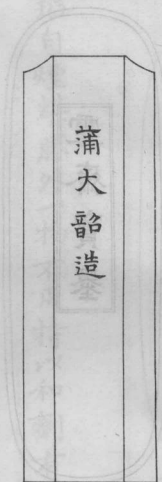 蒲大韶造